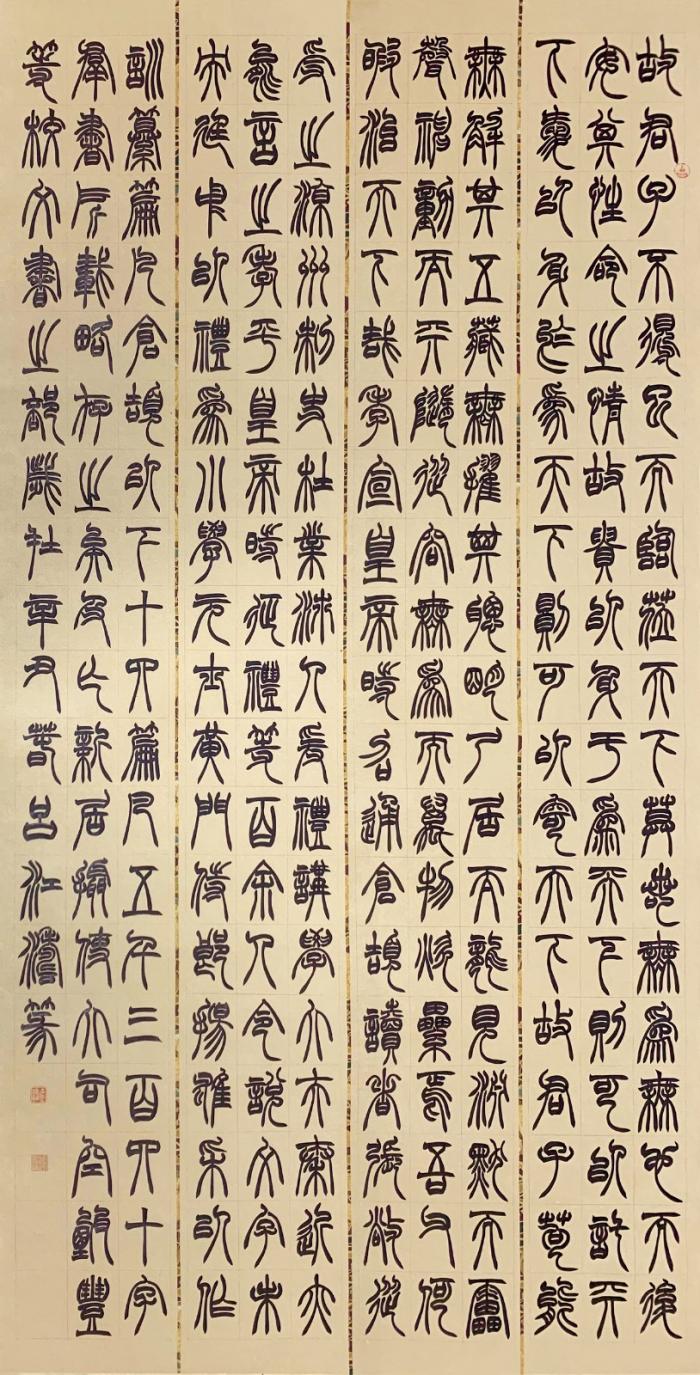 故君子不得已而臨蒞天下莫若無為無也而後
安其性命之情故貴以身于為天下則可以託天
下愛以身於為天下則可以寄天下故君子苟能
無解其五藏無擢其聰明尸居而龍見淵默而雷
聲神動而天隨從容無為而萬物炊累焉吾又何
暇治天下哉孝宣皇帝時召通倉頡讀者張敞從
受之涼州刺史杜業沛人爰禮講學大夫秦近亦
能言之孝平皇帝時徵禮等百余人令說文字未
央廷中以禮為小學元士黃門侍郎揚雄采以作
訓纂篇凡倉頡以下十四篇凡五千三百四十字
羣書所載略存之矣及亡新居攝使大司空甄豐
等校文書之部歲在辛丑春呂江濤篆